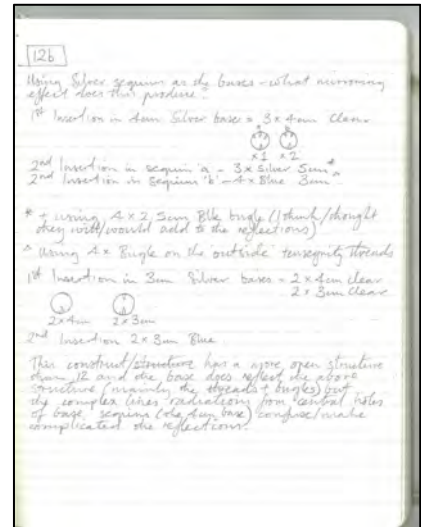 12b
Using Silver sequins as the bases - what mirroring
effect does this produce?
1st Insertion in 4cm Silver bases = 3 x 4cm Clear
x1 x2
2nd Insertion in sequin 'a' - 3 x Silver 5cm *
2nd Insertion in sequins 'b' - 4 x Blue 3cm
* + using 4 x 2.5cm Blk bugle (I think/thought
they will/would add to the reflections)
△ Using 4 x Bugle on the outside tensegrity threads
1st Insertion in 3cm Silver bases = 2 x 4cm Clear
2 x 3cm Clear
2x4cm 2x3cm
2nd Insertion 2 x 3cm Blue
This construct/structure has a more open structure
than 12 and the base does reflect the above
structure (mainly the threads + bugles) but
the complex lines radiations from central holes
of base sequins (the 4cm base) confuse/make
complicated the reflections.